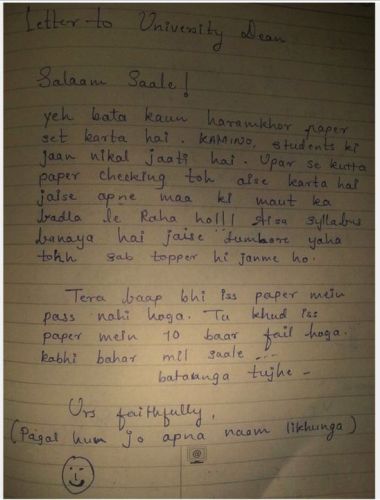 Letter to University Dean
Salaam Saale!
yeh bata kaun haramkhor paper
set karta hai. KAMINO, students ki
jaan nikal jaati hai. Upar se kutta
paper checking toh aise karta hai
jaise apne maa ki maut ka
badla le Raha ho!!!  syllabus
banaya hai jaise  yaha
tohh sab topper hi janme ho.
Tera baap bhi iss paper mein
pass nahi hoga. Tu khud iss
paper mein 10 baar fail hoga.
kabhi bahar mil saale ---
bataunga tujhe -
Urs faithfully,
(Pagal hum jo apna naam likhunga)
@